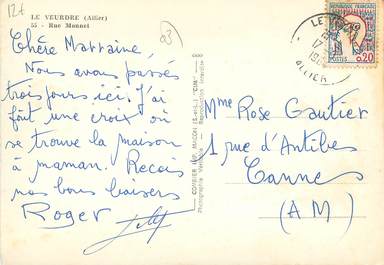 12t
LE VEURDRE (Allier)
55 - Rue Monnet
03
Chère Marraine,
Nous avons passés
trois jours ici. J'ai
fait une croix où
se trouve la maison
à maman. Reçois
nos bons baisers
Roger
COMBIER IMP. MACON (S.-et-L.) "CIM"
Photographie Véritable - Reproduction Interdite
REPUBLIQUE FRANÇAISE
POSTES 0,20
LE VEURDRE
17
ALLIER
Mme Rose Gautier
1 rue d'Antibes
Cannes
(AM)